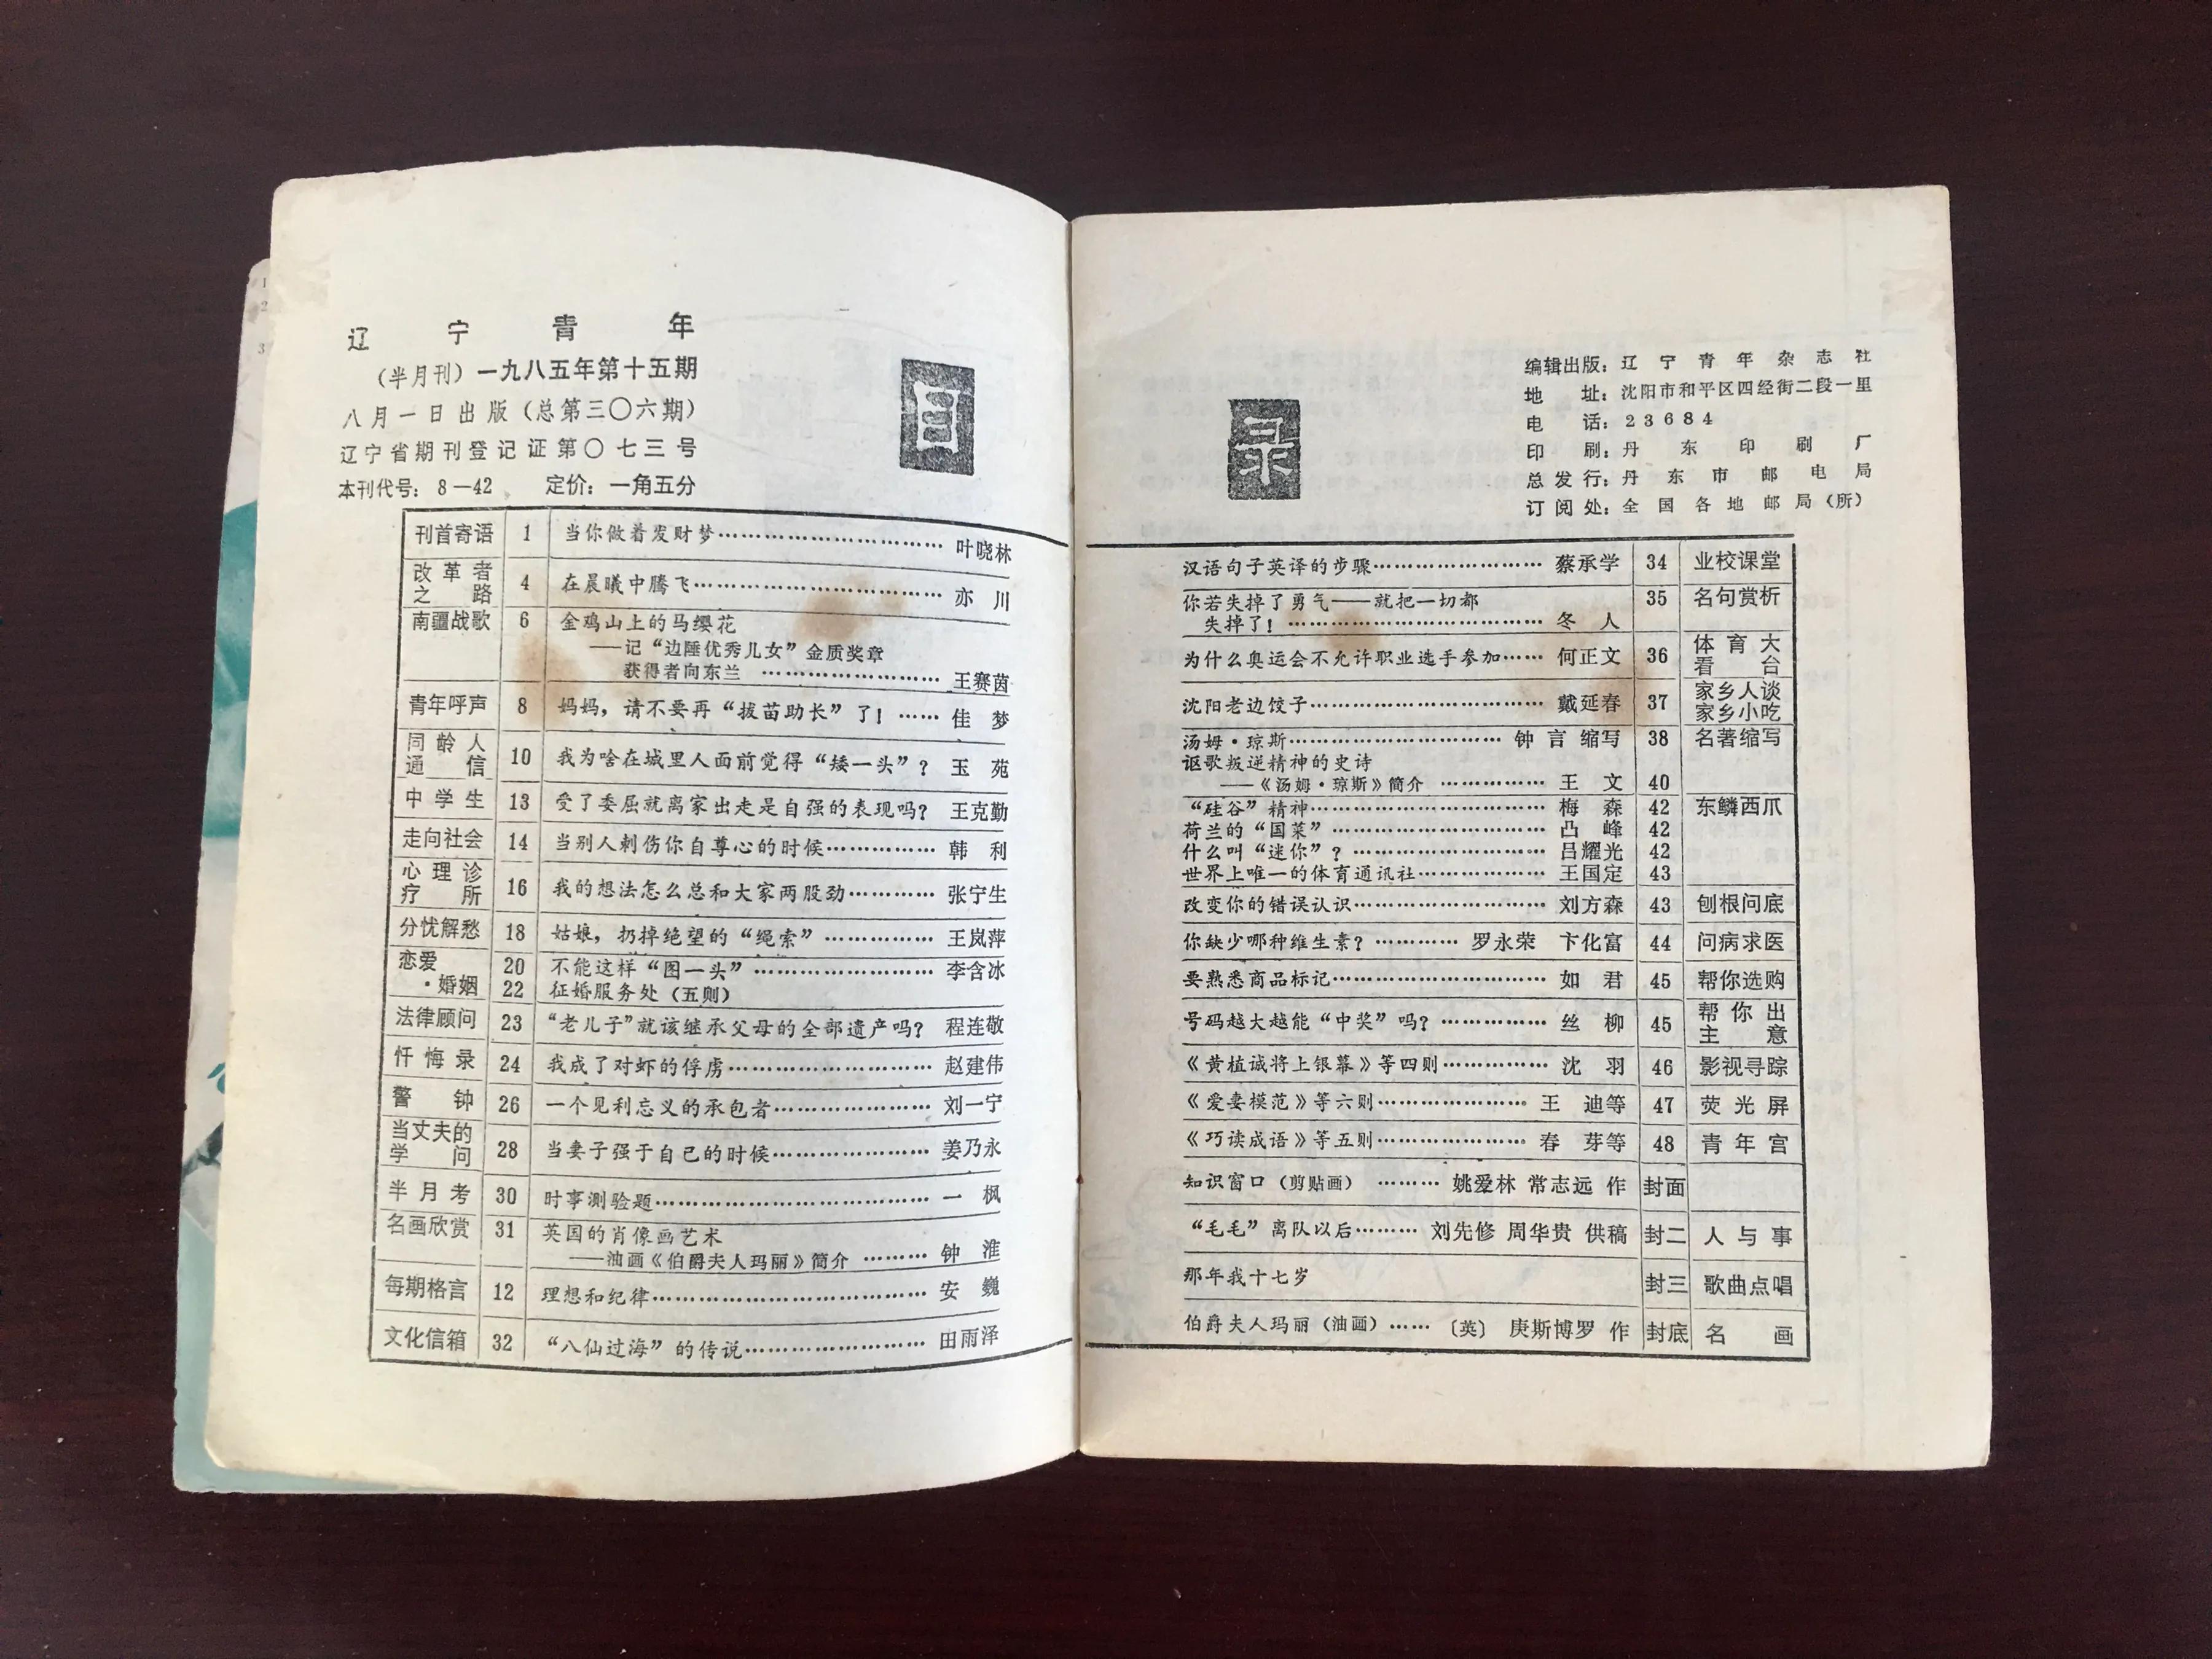 辽宁青年
（半月刊）一九八五年第十五期
八月一日出版（总第三〇六期）
辽宁省期刊登记证第〇七三号
本刊代号：8—42 定价：一角五分
目
刊首寄语 1 当你做着发财梦…………………………叶晓林
改革者之路 4 在晨曦中腾飞…………………………亦川
南疆战歌 6 金鸡山上的马缨花
——记“边陲优秀儿女”金质奖章
获得者向东兰…………………………王赛茵
青年呼声 8 妈妈，请不要再“拔苗助长”了！……佳梦
同龄人通信 10 我为啥在城里人面前觉得“矮一头”？玉苑
中学生 13 受了委屈就离家出走是自强的表现吗？王克勤
走向社会 14 当别人刺伤你自尊心的时候……………韩利
心理诊疗所 16 我的想法怎么总和大家两股劲…………张宁生
分忧解愁 18 姑娘，扔掉绝望的“绳索”……………王岚萍
恋爱·婚姻 20 不能这样“图一头”……………………李含冰
22 征婚服务处（五则）
法律顾问 23 “老儿子”就该继承父母的全部遗产吗？程连敬
忏悔录 24 我成了对虾的俘虏………………………赵建伟
警钟 26 一个见利忘义的承包者…………………刘一宁
当丈夫的学问 28 当妻子强于自己的时候…………………姜乃永
半月考 30 时事测验题………………………………一枫
名画欣赏 31 英国的肖像画艺术
——油画《伯爵夫人玛丽》简介………钟淮
每期格言 12 理想和纪律………………………………安巍
文化信箱 32 “八仙过海”的传说……………………田雨泽
录
编辑出版：辽宁青年杂志社
地址：沈阳市和平区四经街二段一里
电话：23684
印刷：丹东印刷厂
总发行：丹东市邮电局
订阅处：全国各地邮局（所）
汉语句子英译的步骤……………………蔡承学 34 业校课堂
你若失掉了勇气——就把一切都 35 名句赏析
失掉了！……………………………冬人
为什么奥运会不允许职业选手参加……何正文 36 体育大看台
沈阳老边饺子……………………………戴延春 37 家乡人谈家乡小吃
汤姆·琼斯…………………………钟言 缩写 38 名著缩写
讴歌叛逆精神的史诗
——《汤姆·琼斯》简介……………王文 40
“硅谷”精神……………………………梅森 42 东鳞西爪
荷兰的“国菜”…………………………凸峰 42
什么叫“迷你”？………………………吕耀光 42
世界上唯一的体育通讯社………………王国定 43
改变你的错误认识………………………刘方森 43 刨根问底
你缺少哪种维生素？…………罗永荣 卞化富 44 问病求医
要熟悉商品标记…………………………如君 45 帮你选购
号码越大越能“中奖”吗？……………丝柳 45 帮你出主意
《黄植诚将上银幕》等四则……………沈羽 46 影视寻踪
《爱妻模范》等六则…………………王迪等 47 荧光屏
《巧读成语》等五则…………………春芽等 48 青年宫
知识窗口（剪贴画）………姚爱林 常志远 作 封面
“毛毛”离队以后………刘先修 周华贵 供稿 封二 人与事
那年我十七岁 封三 歌曲点唱
伯爵夫人玛丽（油画）……〔英〕庚斯博罗 作 封底 名画